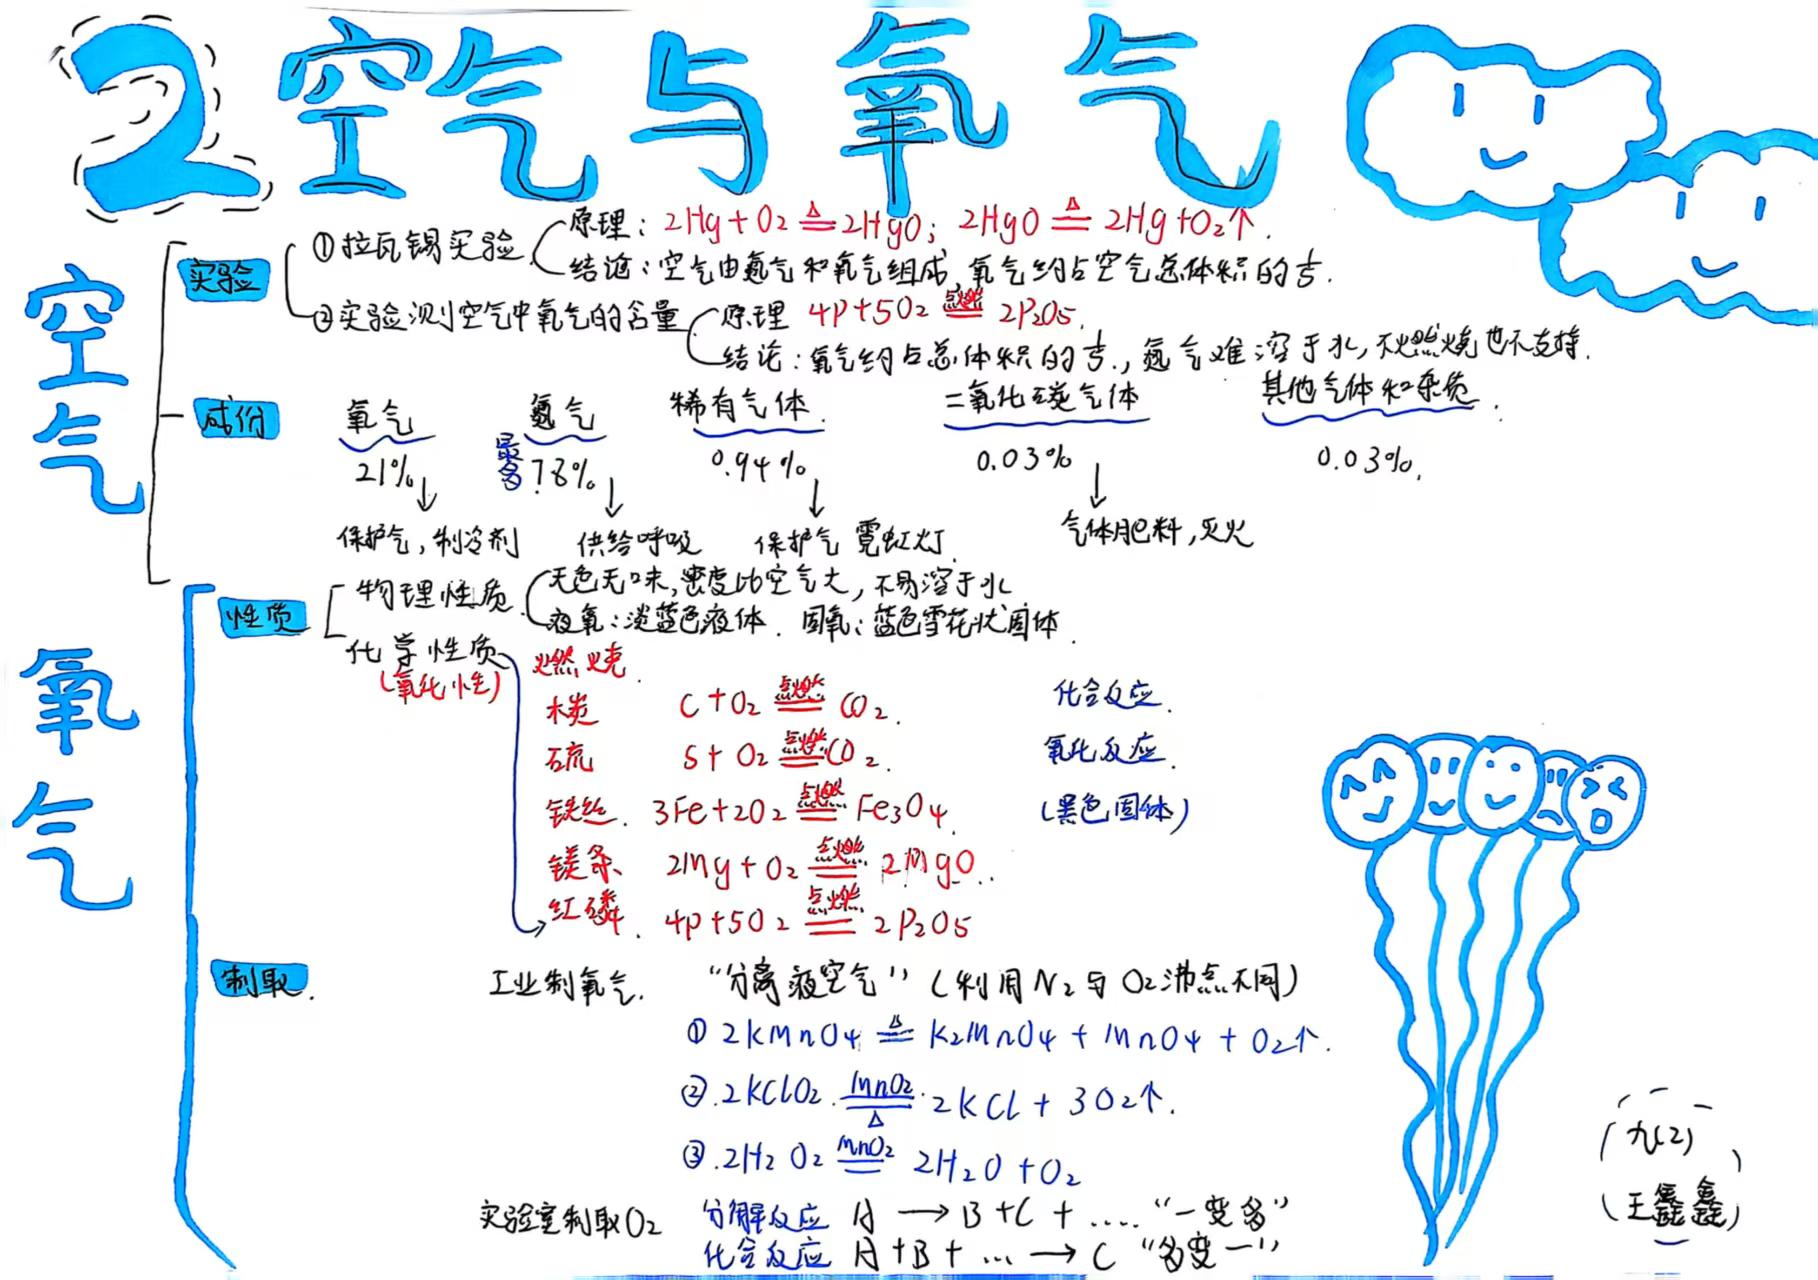 2 空气与氧气
空气
实验
①拉瓦锡实验
原理：2Hg+O₂ ≜ 2HgO；2HgO ≜ 2Hg+O₂↑.
结论：空气由氮气和氧气组成,氧气约占空气总体积的1/5.
②实验测空气中氧气的含量
原理 4P+5O₂ 点燃 2P₂O₅.
结论：氧气约占总体积的1/5.，氮气难溶于水,不燃烧也不支持.
成份
氧气 氮气 稀有气体. 二氧化碳气体 其他气体和杂质.
21% 最多 78% 0.94% 0.03% 0.03%.
保护气,制冷剂 供给呼吸 保护气 霓虹灯. 气体肥料,灭火
氧气
性质
物理性质
无色无味,密度比空气大，不易溶于水
液氧：淡蓝色液体. 固氧：蓝色雪花状固体.
化学性质
(氧化性)
燃烧
木炭 C+O₂ 点燃 CO₂. 化合反应.
硫 S+O₂ 点燃 CO₂. 氧化反应.
铁丝. 3Fe+2O₂ 点燃 Fe₃O₄. (黑色固体)
镁条 2Mg+O₂ 点燃 2MgO..
红磷. 4P+5O₂ 点燃 2P₂O₅
制取.
工业制氧气. “分离液空气”(利用N₂与O₂沸点不同)
① 2KMnO₄ ≜ K₂MnO₄ + MnO₄ + O₂↑.
②.2KClO₂. MnO₂ △ 2KCl + 3O₂↑.
③.2H₂O₂ MnO₂ 2H₂O+O₂
实验室制取O₂ 分解反应 A → B+C+.... “一变多”
化合反应 A+B+... → C “多变一”
九(2)
(王鑫鑫)